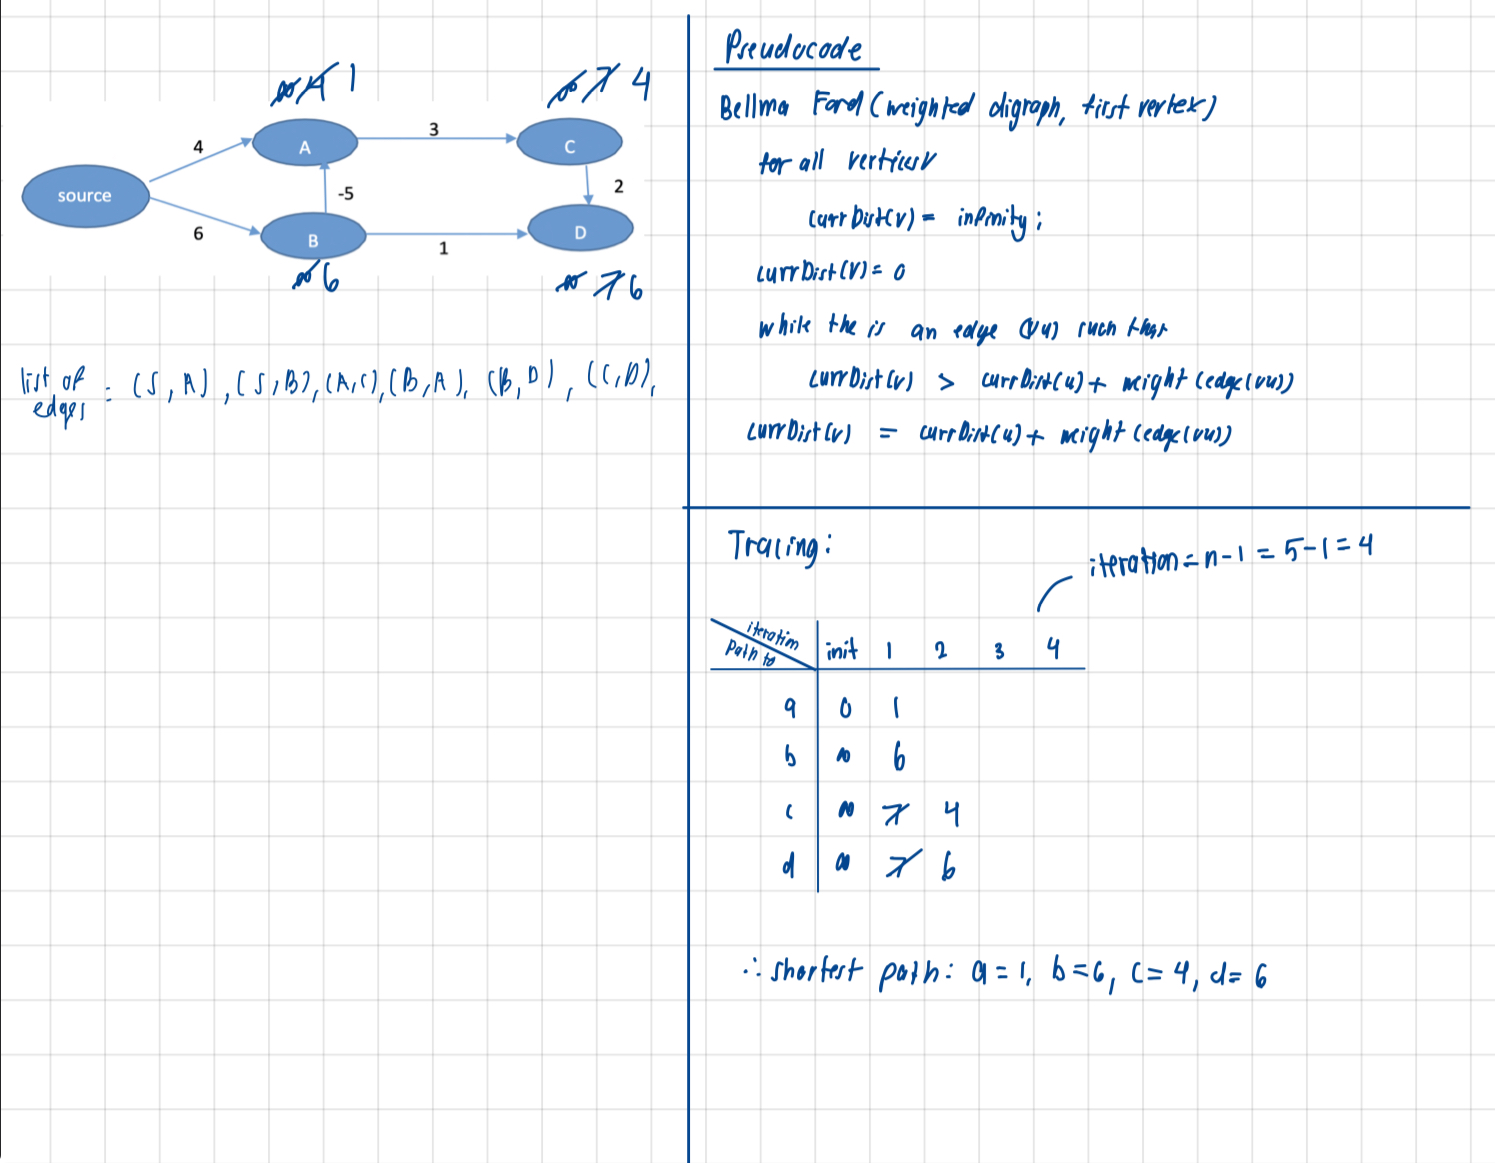 ∞ 4 1
∞ 7 4
4
A
3
C
source
-5
2
6
B
1
D
∞ 6
∞ 7 6
list of edges = (S, A), (S, B), (A, C), (B, A), (B, D), (C, D),
Pseudocode
Bellma Ford (weighted digraph, first vertex)
for all vertices v
currDist(v) = infinity;
currDist(v) = 0
while the is an edge (vu) such that
currDist(v) > currDist(u) + weight (edge(vu))
currDist(v) = currDist(u) + weight (edge(vu))
Tracing:
iteration = n-1 = 5-1 = 4
iteration
Path to
init 1 2 3 4
a 0 1
b ∞ 6
c ∞ 7 4
d ∞ 7 6
∴ shortest path: a = 1, b = 6, c = 4, d = 6